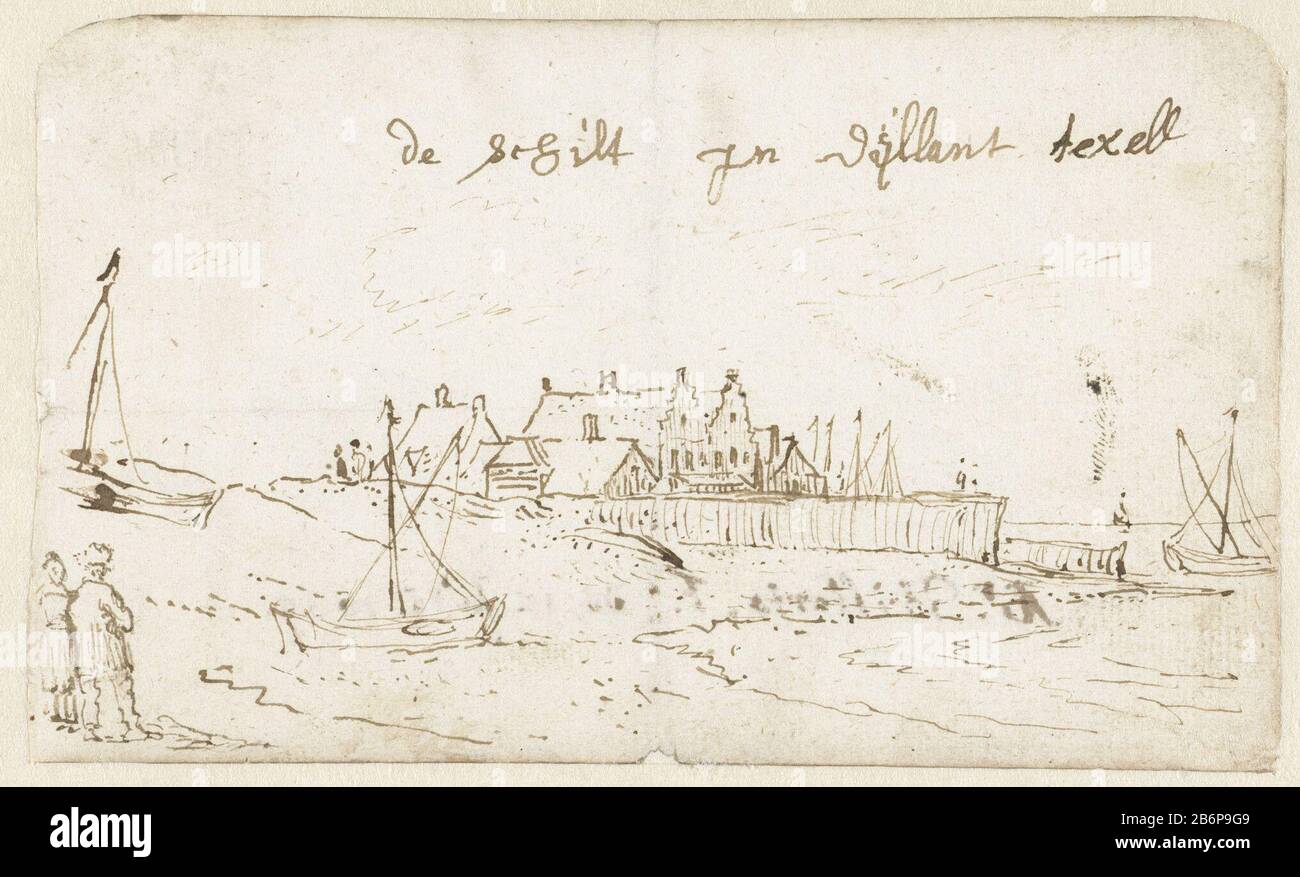 de schilt jn dÿllant texell
alamy
alamy
Image ID: 2B6P9G9
www.alamy.com